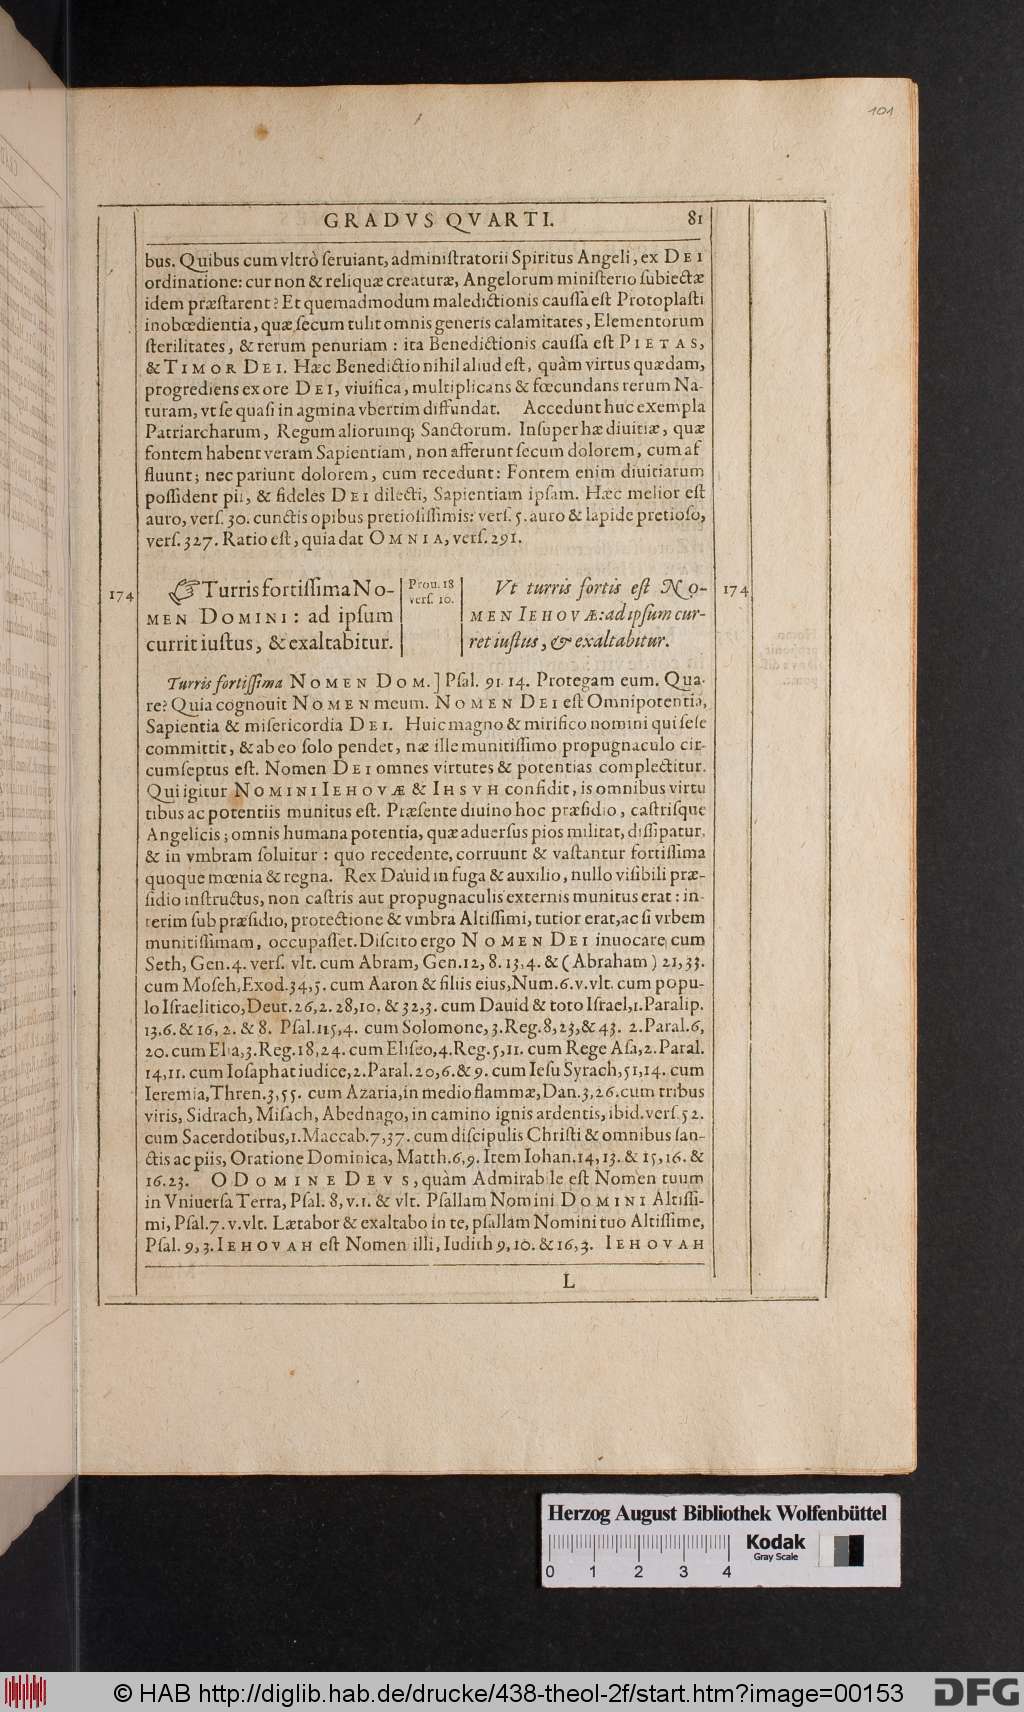 101
GRADVS QVARTI. 81
bus. Quibus cum vltrò ſeruiant, adminiſtratorii Spiritus Angeli, ex DEI
ordinatione: cur non & reliquæ creaturæ, Angelorum miniſterio ſubiectæ
idem præſtarent? Et quemadmodum maledictionis cauſſa eſt Protoplaſti
inobœdientia, quæ ſecum tulit omnis generis calamitates, Elementorum
ſterilitates, & rerum penuriam: ita Benedictionis cauſſa eſt PIETAS,
& TIMOR DEI. Hæc Benedictio nihil aliud eſt, quàm virtus quædam,
progrediens ex ore DEI, viuifica, multiplicans & fœcundans rerum Na-
turam, vt ſe quaſi in agmina vbertim diffundat. Accedunt huc exempla
Patriarcharum, Regum aliorumq; Sanctorum. Inſuper hæ diuitiæ, quæ
fontem habent veram Sapientiam, non afferunt ſecum dolorem, cum af
fluunt; nec pariunt dolorem, cum recedunt: Fontem enim diuitiarum
poſſident pii, & fideles DEI dilecti, Sapientiam ipſam. Hæc melior eſt
auro, verſ. 30. cunctis opibus pretioſiſſimis: verſ. 5. auro & lapide pretioſo,
verſ. 327. Ratio eſt, quia dat OMNIA, verſ. 291.
174 ☞ Turris fortiſſima NO-
MEN DOMINI: ad ipſum
currit iuſtus, & exaltabitur.
Prou. 18
verſ. 10.
Vt turris fortis eſt NO- 174
MEN IEHOVÆ: ad ipſum cur-
ret iuſtus, & exaltabitur.
Turris fortiſſima NOMEN DOM.] Pſal. 91. 14. Protegam eum. Qua-
re? Quia cognouit NOMEN meum. NOMEN DEI eſt Omnipotentia,
Sapientia & miſericordia DEI. Huic magno & mirifico nomini qui ſeſe
committit, & ab eo ſolo pendet, næ ille munitiſſimo propugnaculo cir-
cumſeptus eſt. Nomen DEI omnes virtutes & potentias complectitur.
Qui igitur NOMINI IEHOVÆ & IHSVH confidit, is omnibus virtu
tibus ac potentiis munitus eſt. Præſente diuino hoc præſidio, caſtriſque
Angelicis; omnis humana potentia, quæ aduerſus pios militat, diſſipatur,
& in vmbram ſoluitur: quo recedente, corruunt & vaſtantur fortiſſima
quoque mœnia & regna. Rex Dauid in fuga & auxilio, nullo viſibili præ-
ſidio inſtructus, non caſtris aut propugnaculis externis munitus erat: in-
terim ſub præſidio, protectione & vmbra Altiſſimi, tutior erat, ac ſi vrbem
munitiſſimam, occupaſſet. Diſcito ergo NOMEN DEI inuocare, cum
Seth, Gen.4. verſ. vlt. cum Abram, Gen.12, 8. 13,4. & (Abraham) 21,33.
cum Moſeh, Exod.34,5. cum Aaron & filiis eius, Num.6.v.vlt. cum popu-
lo Iſraelitico, Deut.26,2. 28,10, & 32,3. cum Dauid & toto Iſrael, 1. Paralip.
13.6. & 16, 2. & 8. Pſal.115,4. cum Solomone, 3.Reg.8,23, & 43. 2.Paral.6,
20. cum Elia, 3.Reg.18,24. cum Eliſeo, 4.Reg.5,11. cum Rege Aſa, 2.Paral.
14,11. cum Ioſaphat iudice, 2.Paral.20,6. & 9. cum Ieſu Syrach, 51,14. cum
Ieremia, Thren.3,55. cum Azaria, in medio flammæ, Dan.3,26. cum tribus
viris, Sidrach, Miſach, Abednago, in camino ignis ardentis, ibid. verſ. 52.
cum Sacerdotibus, 1.Maccab.7,37. cum diſcipulis Chriſti & omnibus ſan-
ctis ac piis, Oratione Dominica, Matth.6,9. Item Iohan.14,13. & 15,16. &
16.23. O DOMINE DEVS, quàm Admirabile eſt Nomen tuum
in Vniuerſa Terra, Pſal. 8, v.1. & vlt. Pſallam Nomini DOMINI Altiſſi-
mi, Pſal.7. v.vlt. Lætabor & exaltabo in te, pſallam Nomini tuo Altiſſime,
Pſal. 9,3. IEHOVAH eſt Nomen illi, Iudith 9,10. & 16,3. IEHOVAH
L
Herzog August Bibliothek Wolfenbüttel
Kodak
Gray Scale
0 1 2 3 4
© HAB http://diglib.hab.de/drucke/438-theol-2f/start.htm?image=00153
DFG